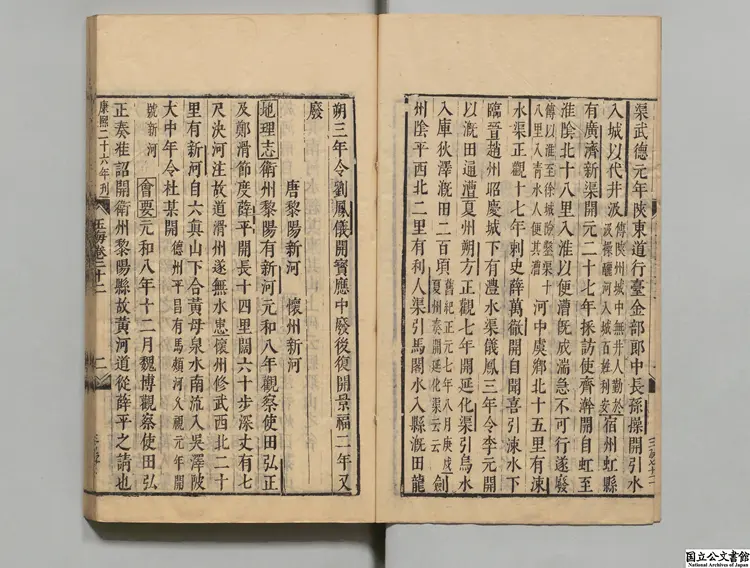 渠武德元年陝東道行臺金部郎中長孫操開引水
入城以代井汲傳陝州城中無井人勤於
汲操釃河入城百姓利安宿州虹縣
有廣濟新渠開元二十七年採訪使齊澣開自虹至
淮陰北十八里入淮以便漕旣成湍急不可行遂廢
傳以淮至徐城險鑿渠十
八里入青水人便其漕河中虞鄉北十五里有涑
水渠正觀十七年刺史薛萬徹開自聞喜引涑水下
臨晉趙州昭慶城下有澧水渠儀鳳三年令李元開
以漑田逼漕夏州朔方正觀七年開延化渠引烏水
入庫狄澤漑田二百頃舊紀正元七年八月庚戌
夏州奏開延化渠云云劍
州陰平西北二里有利人渠引馬閣水入縣漑田龍
朔三年令劉鳳儀開寶應中廢後復開景福二年又
廢
唐黎陽新河 懷州新河
地理志衛州黎陽有新河元和八年觀察使田弘正
及鄭滑節度薛平開長十四里闊六十步深丈有七
尺決河注故道滑州遂無水患懷州修武西北二十
里有新河自六真山下合黃母泉水南流入吳澤陂
大中年令杜某開德州平昌有馬頰河久視元年開
號新河會要元和八年十二月魏博觀察使田弘
正奏准詔開衛州黎陽縣故黃河道從薛平之請也
康熙二十六年刊
玉海卷二十二
國立公文書館
National Archives of Japan